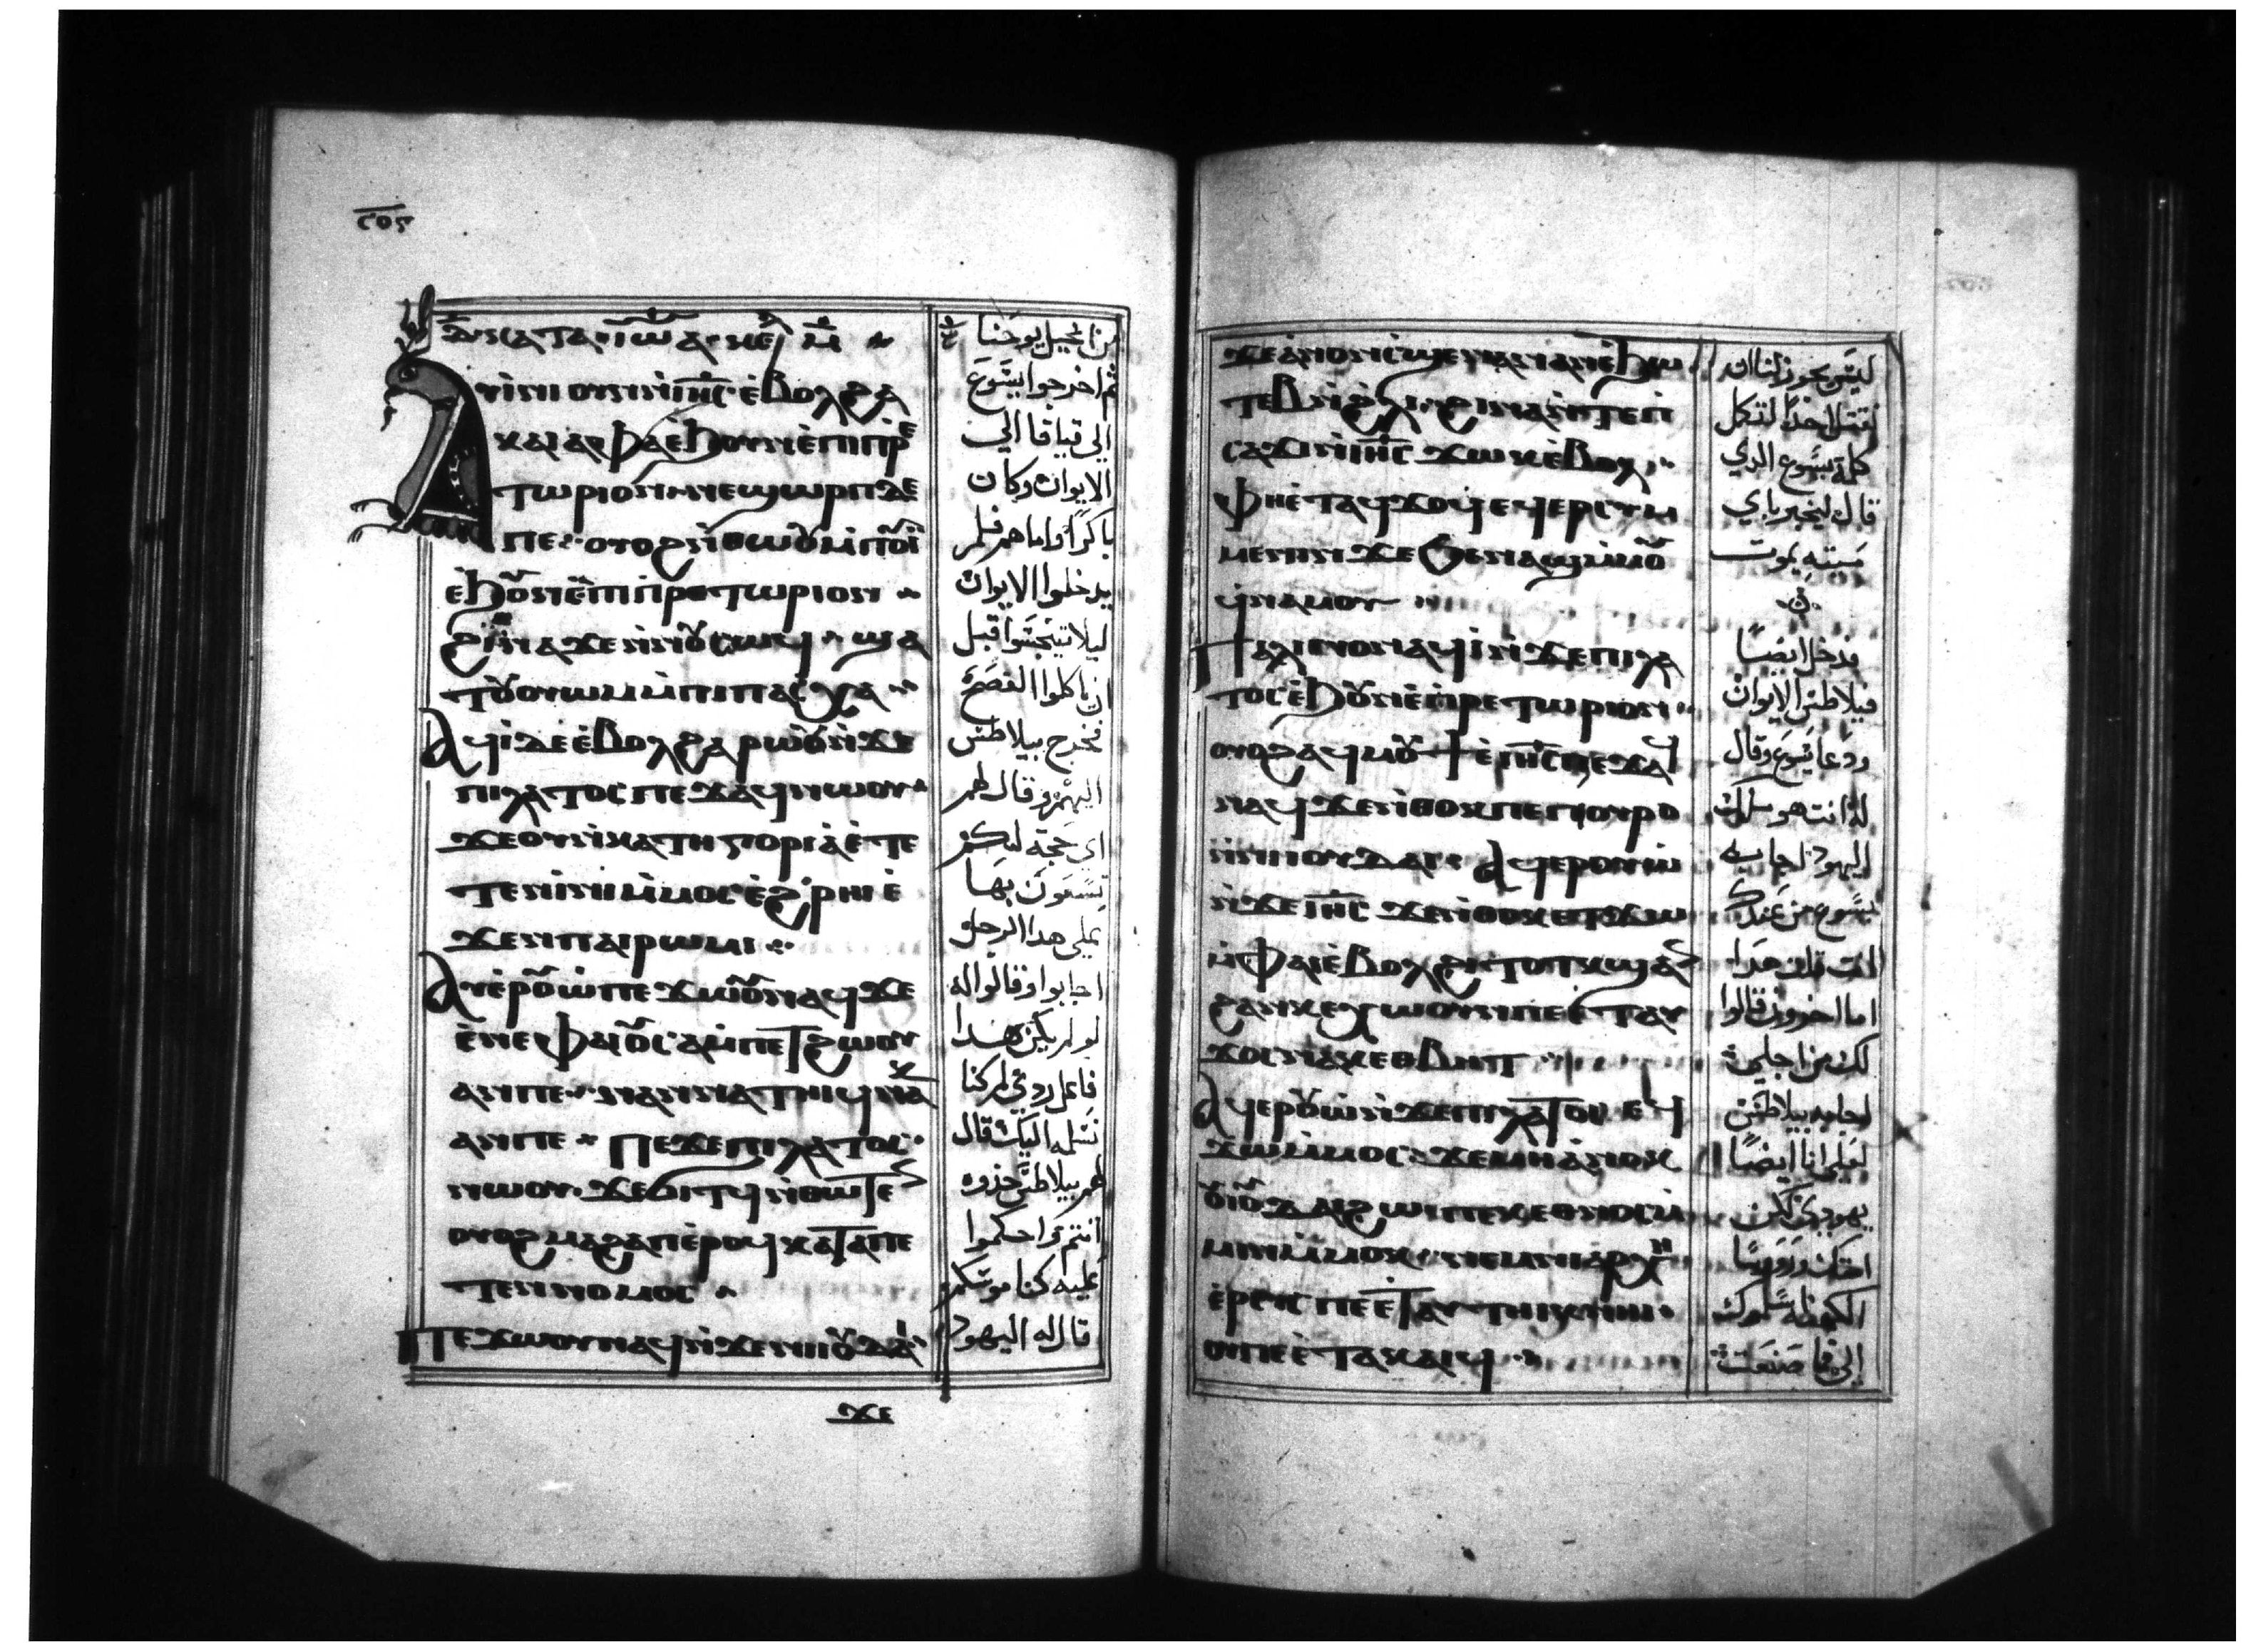 ⲁⲩⲓⲛⲓ ⲟⲩⲛ ⲛⲓⲏ̅ⲥ̅ ⲉⲃⲟⲗϩⲁ
ⲧⲱⲣⲓⲟⲛ ⲛⲉ ϣⲱⲣⲡ ⲇⲉ
ⲡⲉ ⲟⲩⲟϩ ⲛⲑⲱⲟⲩ ⲙⲡⲟⲩⲓ
ⲉϧⲟⲩⲛ ⲉⲡⲓⲡⲣⲉⲧⲱⲣⲓⲟⲛ
ϩⲓⲛⲁ ϫⲉ ⲛⲛⲟⲩⲥⲱϥ ϣⲁ
ⲧⲟⲩⲟⲩⲱⲙ ⲙⲡⲓⲡⲁⲥⲭⲁ
ⲁϥⲓ ⲇⲉ ⲉⲃⲟⲗ ϩⲁⲣⲱⲟⲩ ⲛϫⲉ
ⲡⲓⲗⲁⲧⲟⲥ ⲡⲉϫⲁϥ ⲛⲱⲟⲩ
ϫⲉ ⲟⲩ ⲛⲕⲁⲧⲏⲅⲟⲣⲓⲁ ⲉⲧⲉ
ⲧⲉⲛⲓⲛⲓ ⲙⲙⲟⲥ ⲉϩⲣⲏⲓ ⲉ
ϫⲉⲛ ⲡⲁⲓⲣⲱⲙⲓ
ⲁⲩⲉⲣⲟⲩⲱ ⲡⲉϫⲱⲟⲩ ⲛⲁϥ ϫⲉ
ⲉⲛⲉ ⲫⲁⲓ ⲟⲩⲥⲁⲙⲡⲉⲧϩⲱⲟⲩ
ⲁⲛ ⲡⲉ ⲛⲁⲛⲛⲁⲧⲏⲓϥ ⲛⲁⲕ
ⲁⲛ ⲡⲉ ⲡⲉϫⲉ ⲡⲓⲗⲁⲧⲟⲥ
ⲛⲱⲟⲩ ϫⲉ ϭⲓⲧϥ ⲛⲑⲱⲧⲉⲛ
ⲟⲩⲟϩ ⲙⲁϩⲁⲡ ⲉⲣⲟϥ ⲕⲁⲧⲁ ⲡⲉ
ⲧⲉⲛⲛⲟⲙⲟⲥ
ⲡⲉϫⲱⲟⲩ ⲛⲁϥ ⲛϫⲉ ⲛⲓⲓⲟⲩⲇⲁⲓ
ϫⲉ
من انجيل يوحنا
ثم اخرجوا يسوع
الى قيافا الى
الايوان وكان
باكرًا واما هم فلم
يدخلوا الايوان
ليلا يتنجسوا قبل
ان ياكلوا الفصح
فخرج بيلاطس
اليهم وقال لهم
اي حجة لكم
تسعون بها
على هدا الرجل
اجابوا وقالوا له
لو لم يكن هدا
فاعل ردي لم كنا
نسلمه اليك قال
لهم بيلاطس خذوه
انتم واحكموا
عليه كناموسكم
قال له اليهود
ϫⲉ ⲁⲛⲟⲛ ⲥϣⲉ ⲛⲁⲛ ⲁⲛ ⲉϧⲱ
ⲧⲉⲃ ⲛϩⲗⲓ ϩⲓⲛⲁ ⲛⲧⲉ ⲡ
ⲥⲁϫⲓ ⲛⲓⲏ̅ⲥ̅ ϫⲱⲕ ⲉⲃⲟⲗ
ⲫⲏⲉⲧⲁϥϫⲟϥ ⲉϥⲉⲣⲥⲩⲙ
ⲙⲉⲛⲓⲛ ϫⲉ ϧⲉⲛ ⲁϣ ⲙⲙⲟⲩ
ϥⲛⲁⲙⲟⲩ
ⲡⲁⲗⲓⲛ ⲟⲛ ⲁϥⲓ ⲛϫⲉ ⲡⲓⲗⲁ
ⲧⲟⲥ ⲉϧⲟⲩⲛ ⲉⲡⲓⲡⲣⲉⲧⲱⲣⲓⲟⲛ
ⲟⲩⲟϩ ⲁϥⲙⲟⲩϯ ⲉⲓⲏ̅ⲥ̅ ⲡⲉϫⲁϥ
ⲛⲁϥ ϫⲉ ⲛⲑⲟⲕ ⲡⲉ ⲡⲟⲩⲣⲟ
ⲛⲛⲓⲓⲟⲩⲇⲁⲓ ⲁϥⲉⲣⲟⲩⲱ
ⲛϫⲉ ⲓⲏ̅ⲥ̅ ϫⲉ ⲛⲑⲟⲕ ⲉⲧϫⲱ
ⲙⲫⲁⲓ ⲉⲃⲟⲗ ϩⲓⲧⲟⲧⲕ ϣⲁⲛ
ϩⲁⲛⲕⲉⲭⲱⲟⲩⲛⲓ ⲡⲉⲧⲁⲩ
ϫⲟⲥ ⲛⲁⲕ ⲉⲑⲃⲏⲧ
ⲁϥⲉⲣⲟⲩⲱ ⲛϫⲉ ⲡⲓⲗⲁⲧⲟⲥ ⲉϥ
ϫⲱ ⲙⲙⲟⲥ ϫⲉ ⲙⲏ ⲁⲛⲟⲕ
ⲟⲩⲓⲟⲩⲇⲁⲓ ϩⲱ ⲡⲉⲕⲉⲑⲛⲟⲥ ⲙ
ⲙⲓⲛ ⲙⲙⲟⲕ ⲛⲉⲙ ⲛⲓⲁⲣⲭⲏ
ⲉⲣⲉⲩⲥ ⲡⲉⲧⲁⲩⲧⲏⲓⲕ ⲛⲏⲓ
ⲟⲩ ⲡⲉ ⲉⲧⲁⲕⲁⲓϥ
ليس يجوز لنا ان
نقتل احدًا لتكمل
كلمة يسوع الدي
قال ليخبر باي
ميته يموت
فدخل ايضًا
فيلاطس الايوان
ودعا يسوع وقال
له انت هو ملك
اليهود اجابه
يسوع من عندك
انت قلت هدا
اما اخرون قالوا
لك من اجلي
اجابه بيلاطس
لعلي انا ايضًا
يهودي لكن
امتك وروسا
الكهنه اسلموك
الي ما صنعت